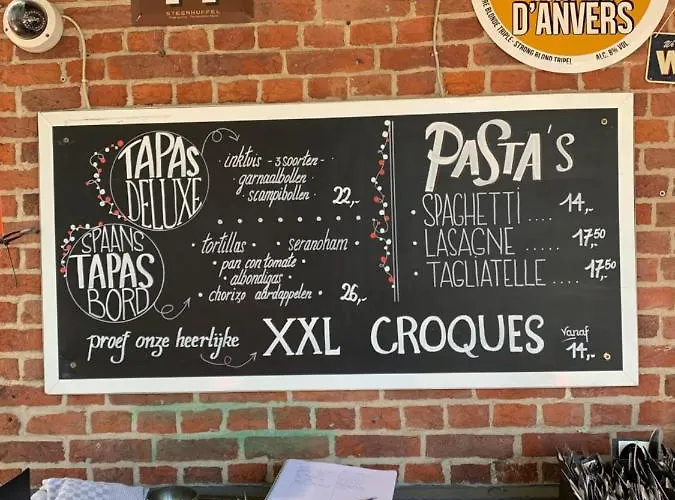 STEENHUFFEL
D'ANVERS
BLONDE TRIPLE · STRONG BLOND TRIPEL
ALC. 8% VOL
W
TAPAS
DELUXE
· inktvis - 3 soorten -
garnaalbollen ·
· scampibollen
22,-
SPAANS
TAPAS
BORD
· tortillas · seranoham ·
· pan con tomate ·
· albondigas
· chorizo aardappelen ·
26,-
proef onze heerlijke XXL CROQUES Vanaf 14,-
PASTA'S
· SPAGHETTI .... 14,-
· LASAGNE ...... 17,50
· TAGLIATELLE .... 17,50